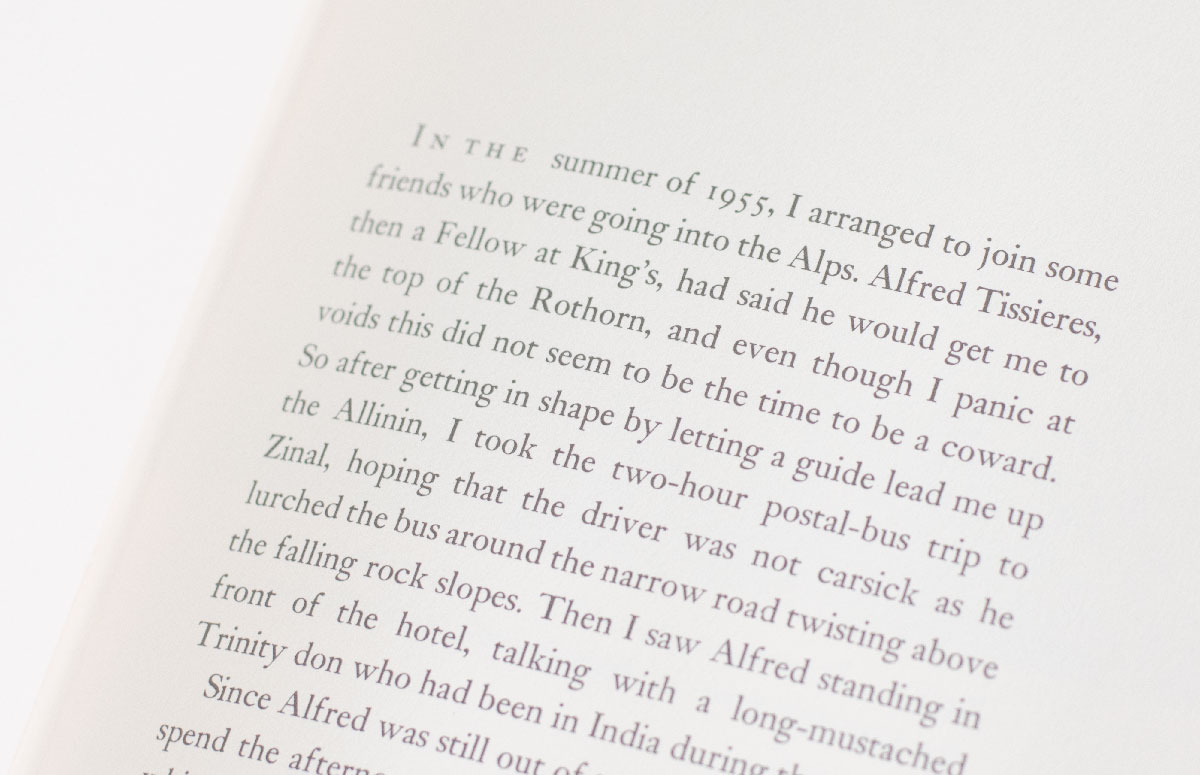 IN THE summer of 1955, I arranged to join some
friends who were going into the Alps. Alfred Tissieres,
then a Fellow at King's, had said he would get me to
the top of the Rothorn, and even though I panic at
voids this did not seem to be the time to be a coward.
So after getting in shape by letting a guide lead me up
the Allinin, I took the two-hour postal-bus trip to
Zinal, hoping that the driver was not carsick as he
lurched the bus around the narrow road twisting above
the falling rock slopes. Then I saw Alfred standing in
front of the hotel, talking with a long-mustached
Trinity don who had been in India during
Since Alfred was still out of
spend the